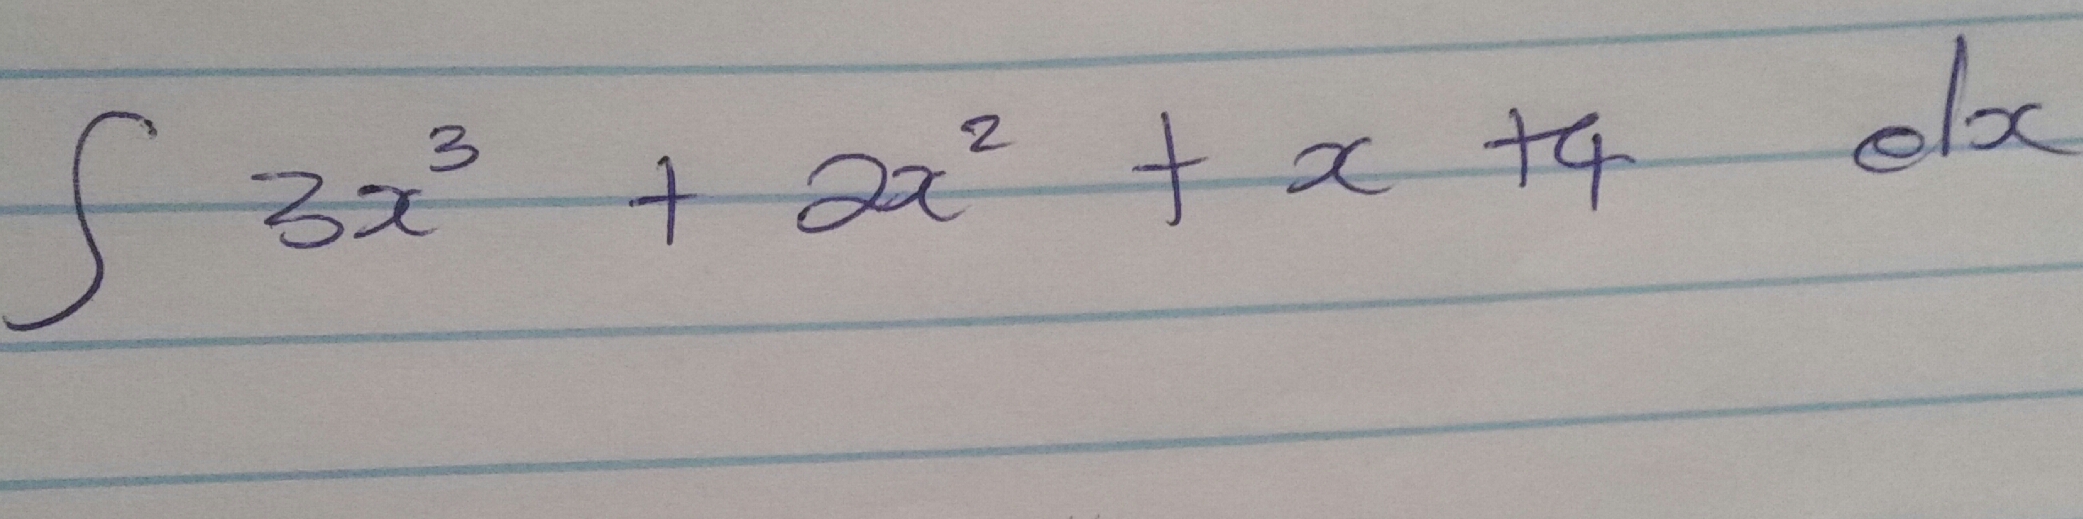 ∫ 3x³ + 2x² + x + 4 dx